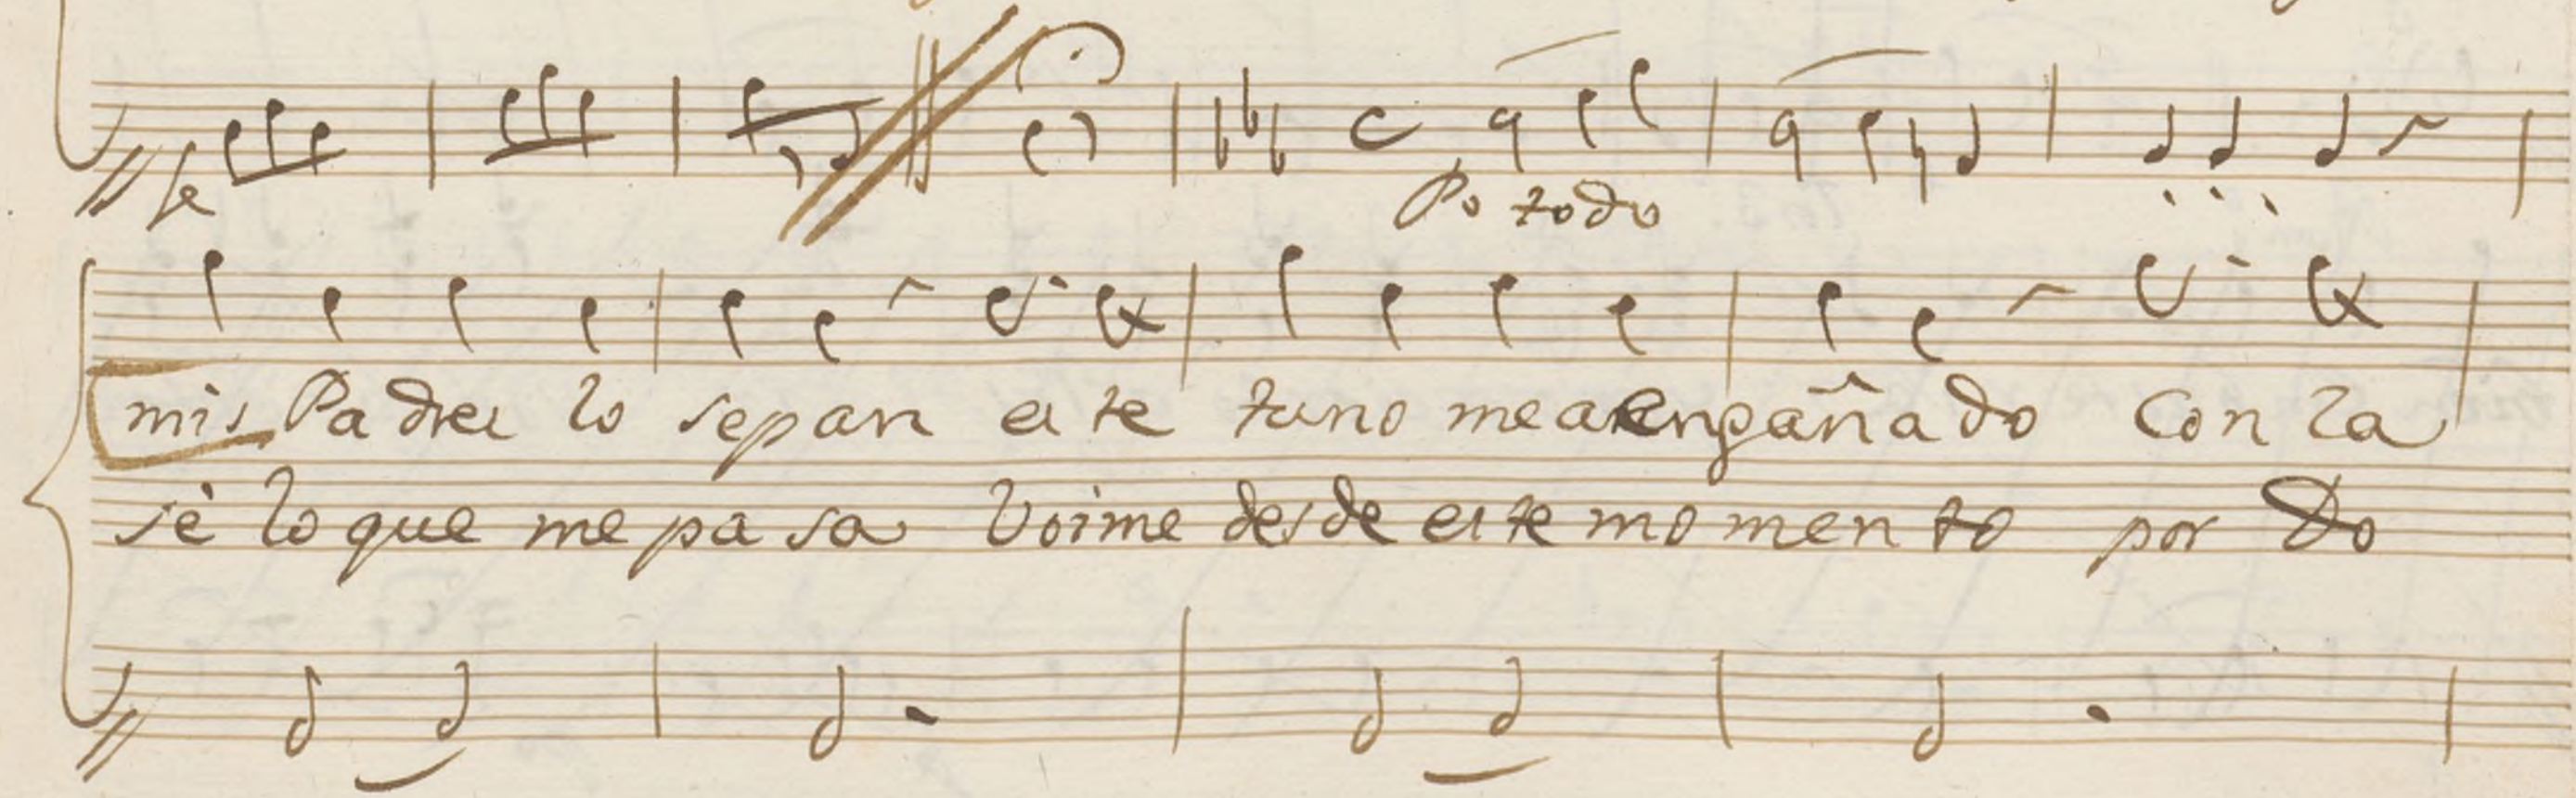 fe
Po todo
mis Padres lo sepan este tuno mea engañado Con la
sè lo que me pasa Voime desde este momento por Do